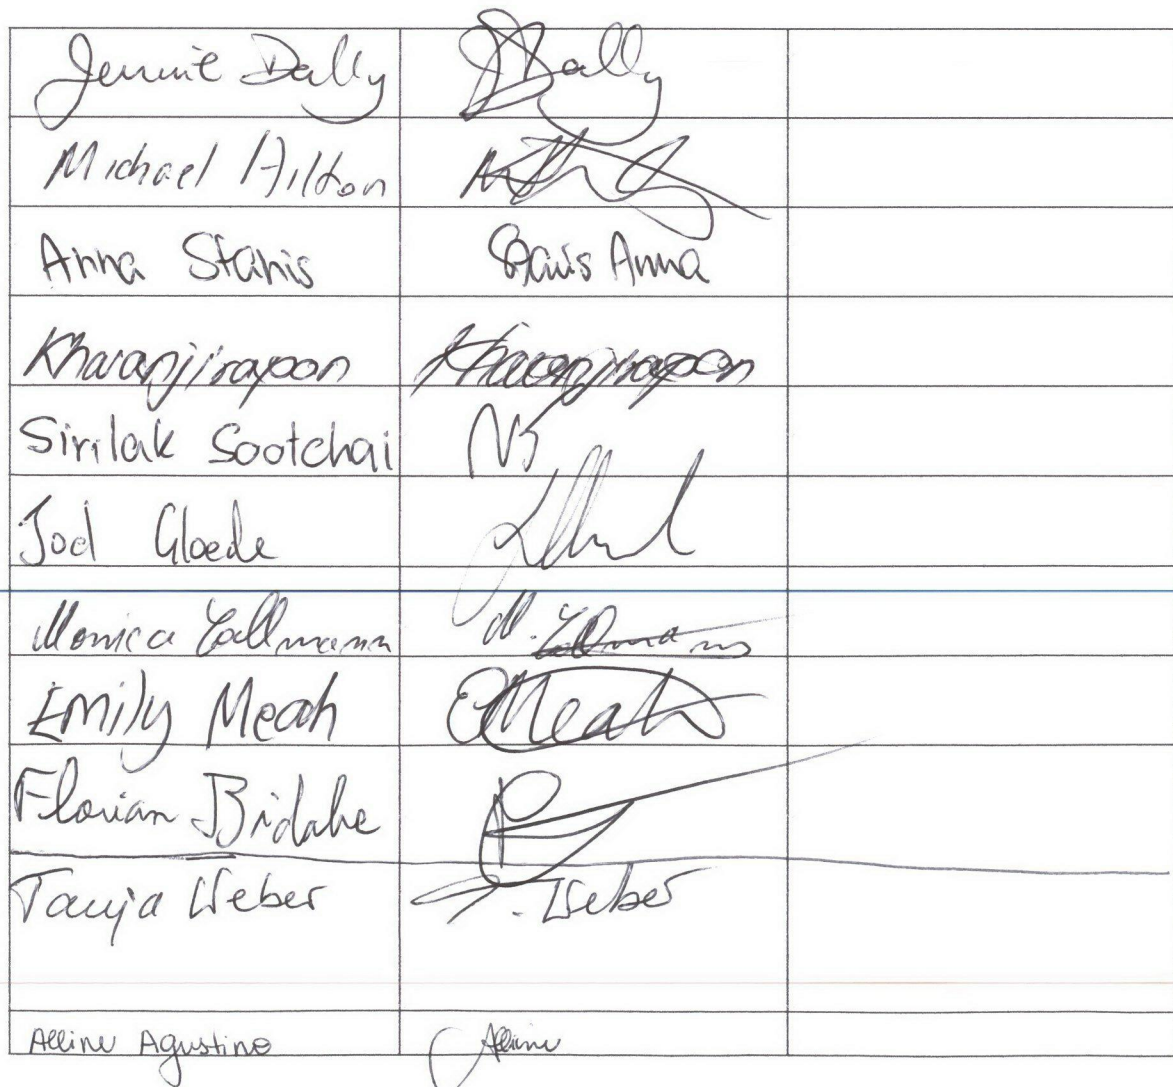 Jennie Dally JDally
Michael Hilton
Anna Stanis Stanis Anna
Kharanjirapon Kharanjirapon
Sirilak Sootchai NS
Joel Gloede
Monica Zallmann M. Zallmann
Emily Meah EMeah
Florian Bridahe
Tanja Weber T. Weber
Alline Agustino Alline